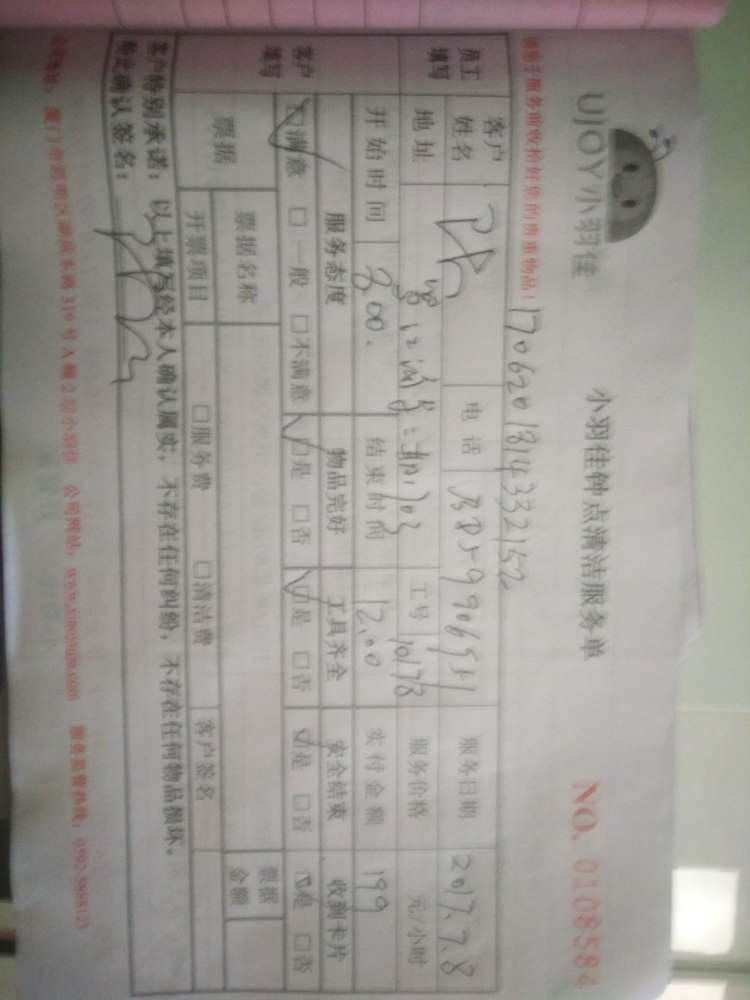 UJOY小羽佳
小羽佳钟点清洁服务单
NO. 0108584
1706201814332152
请您于服务前收拾好您的贵重物品！
员工填写 客户姓名 电话 服务日期 2017.7.8
地址 工号 10178 服务价格 元/小时
开始时间 8:00. 结束时间 12:00 实付金额 199
客户填写 服务态度 物品完好 工具齐全 安全结束 收到卡片
☑满意 □一般 □不满意 ☑是 □否 ☑是 □否 ☑是 □否 ☑是 □否
票据 票据名称 票据金额
开票项目 □服务费 □清洁费 客户签名
客户特别承诺：以上填写经本人确认属实，不存在任何纠纷，不存在任何物品损坏。
特此确认签名：
319号A幢2层小羽佳 公司网站：www.xiaoyujia.com 服务监督热线：